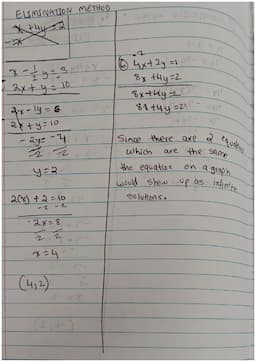 ELIMINATION METHOD
x + 4y = 2
x - 1/2 y = 3
2x + y = 10
2x - 1y = 6
2x + y = 10
-2y = -4
-2 -2
y = 2
2(x) + 2 = 10
-2 -2
2x = 8
2 2
x = 4
(4,2)
-2
4x + 2y = 1
8x + 4y = 2
8x + 4y = 2
8x + 4y = 2
Since there are 2 equations
which are the same
the equation on a graph
would show up as infinite
solutions.